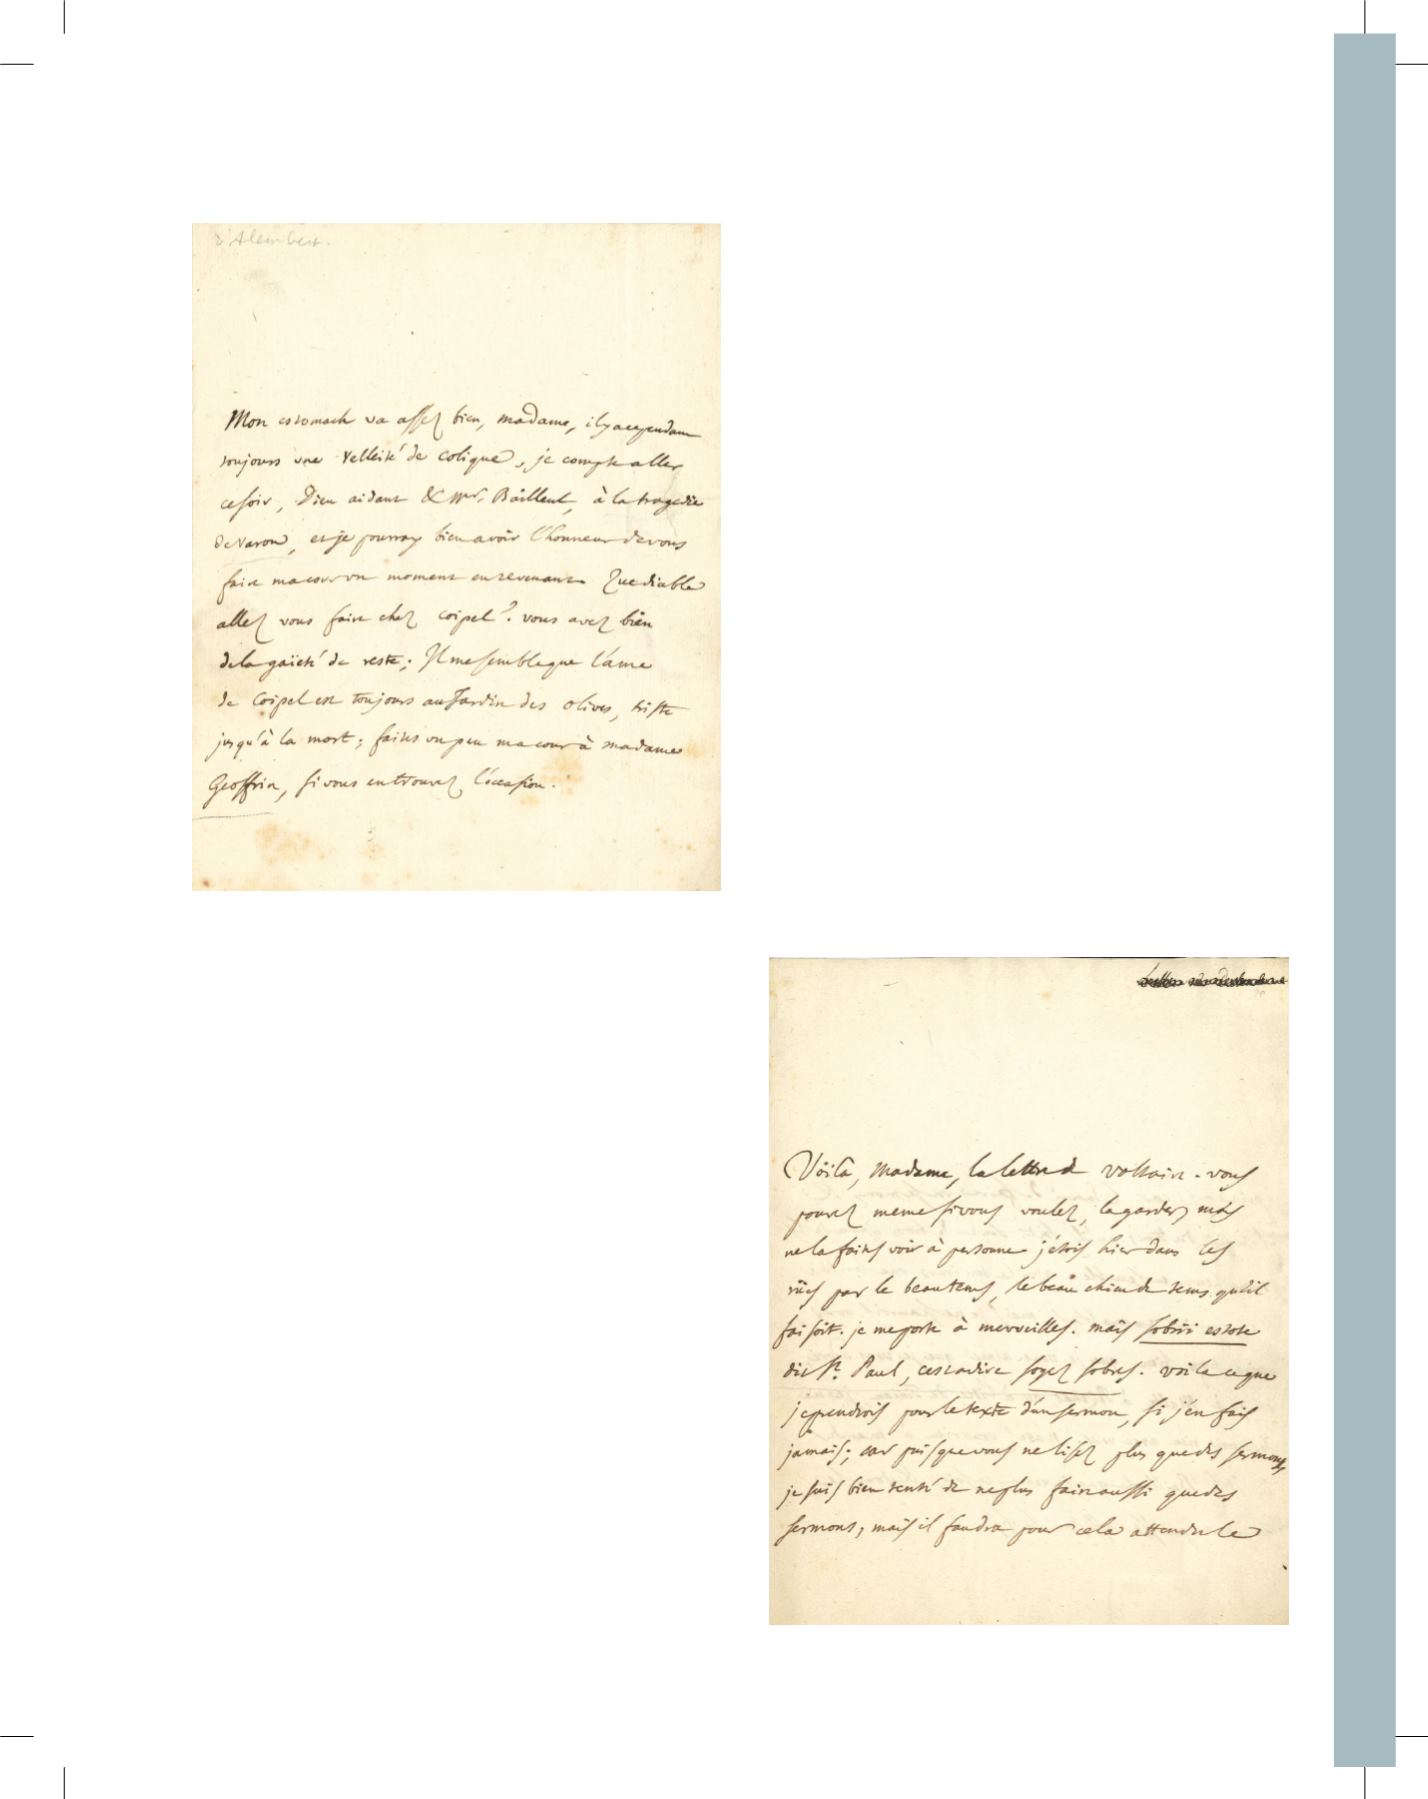 d'Alembert.
Mon estomach va assez bien, madame, il y a cependant
toujours une velleité de colique, je compte aller
ce soir, Dieu aidant & Mr. Bailleul, à la tragedie
de Varon, et je pourray bien avoir l'honneur de vous
faire ma cour un moment en revenant. Que diable
allez vous faire chez Coipel? vous avez bien
de la gaïeté de reste; Il me semble que l'ame
de Coipel est toujours au Jardin des olives, triste
jusqu'à la mort; faites un peu ma cour à madame
Geoffrin, si vous en trouvez l'occasion.
Voila, Madame, la lettre de Voltaire. vous
pouvez meme si vous voulez, la garder, mais
ne la faites voir à personne j'étois hier dans les
rües par le beau tems, le beau chien de tems qu'il
faisoit. je me porte à merveilles. mais sobrii estote
dit St. Paul, cest a dire soyez sobres. voila ce que
je prendrois pour le texte d'un sermon, si j'en fais
jamais; car puisque vous ne lisez plus que des sermons,
je suis bien tenté de ne plus faire aussi que des
sermons; mais il faudra pour cela attendre le